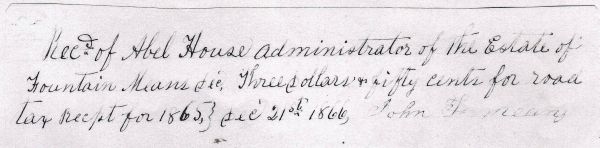 Recd of Abel House administrator of the Estate of
Fountain Means dic, Three dollars & fifty cents for road
tax Recpt for 1865,} dic 21st 1866, John F. means